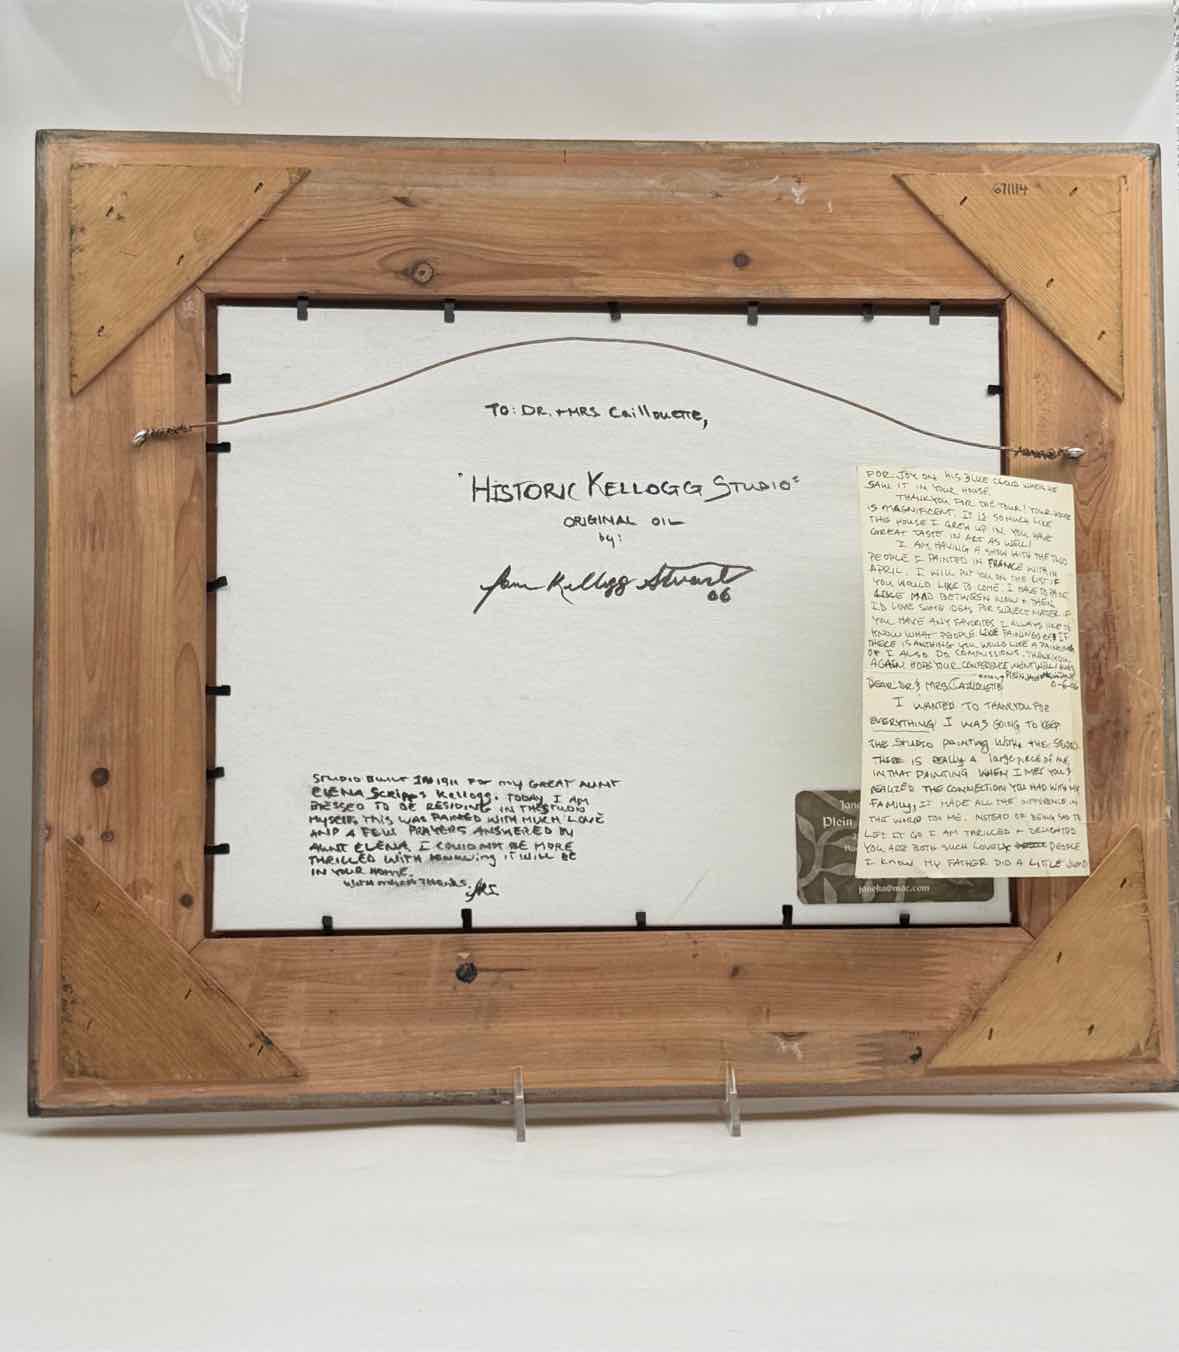 671114
TO: DR. + MRS. Caillouette,
"HISTORIC KELLOGG STUDIO"
ORIGINAL OIL
by:
Jane Kellogg Stewart
06
STUDIO BUILT IN 1911 FOR MY GREAT AUNT
ELENA Scripps Kellogg. TODAY I AM
BLESSED TO BE RESIDING IN THE STUDIO
MYSELF. THIS WAS PAINTED WITH MUCH LOVE
AND A FEW PRAYERS ANSWERED BY
AUNT ELENA. I COULD NOT BE MORE
THRILLED WITH knowing IT WILL BE
IN YOUR HOME.
WITH THANKS,
FOR JOY ON HIS BLUE CLOUD WHEN HE
SAW IT IN YOUR HOUSE.
THANK YOU FOR THE TOUR! YOUR HOUSE
IS MAGNIFICENT. IT IS SO MUCH LIKE
THE HOUSE I GREW UP IN. YOU HAVE
GREAT TASTE IN ART AS WELL!
I AM HAVING A SHOW WITH THE TWO
PEOPLE I PAINTED IN FRANCE WITH IN
APRIL. I WILL PUT YOU ON THE LIST IF
YOU WOULD LIKE TO COME. I HAVE TO PAINT
LIKE MAD BETWEEN NOW + THEN.
I'D LOVE SOME IDEAS FOR SUBJECT MATTER IF
YOU HAVE ANY FAVORITES. I ALWAYS LIKE TO
KNOW WHAT PEOPLE LIKE PAINTINGS OF IF
THERE IS ANYTHING YOU WOULD LIKE A PAINTING
OF I ALSO DO COMMISSIONS. THANK YOU
AGAIN. HOPE YOUR CONFERENCE WENT WELL!
DEAR DR & MRS. CAILLOUETTE
I WANTED TO THANK YOU FOR
EVERYTHING! I WAS GOING TO KEEP
THE STUDIO PAINTING WITH THE STUDIO
THERE IS REALLY A large PIECE OF ME
IN THAT PAINTING WHEN I MET YOU &
REALIZED THE CONNECTION YOU HAD WITH MY
FAMILY, IT MADE ALL THE DIFFERENCE IN
THE WORLD FOR ME. INSTEAD OF BEING SAD TO
LET IT GO I AM THRILLED + DELIGHTED
YOU ARE BOTH SUCH LOVELY PEOPLE
I KNOW MY FATHER DID A LITTLE JUMP
Jane
Plein
janeka@mac.com